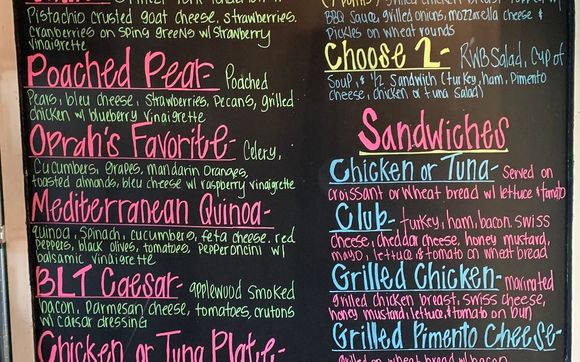 Pistachio crusted goat cheese, strawberries.
Cranberries on Sping greens w/ Strawberry
Vinaigrette
Poached Pear- Poached
Pears, bleu cheese, Strawberries, Pecans, grilled
chicken w/ blueberry vinaigrette
Oprah's Favorite- Celery,
Cucumbers, Grapes, mandarin Oranges,
toasted almonds, bleu cheese w/ raspberry vinaigrette
Mediterranean Quinoa-
quinoa, Spinach, cucumbers, feta cheese, red
Peppers, black olives, tomatoes, Pepperoncini w/
balsamic vinaigrette
BLT Caesar- applewood Smoked
bacon, Parmesan cheese, tomatoes, crutons
w/ caesar dressing
Chicken or Tuna Plate-
BBQ Sauce, grilled onions, mozzarella cheese &
Pickles on wheat rounds
Choose 2- RWB Salad, Cup of
Soup, & 1/2 Sandwich (turkey, ham, Pimento
cheese, chicken or tuna Salad)
Sandwiches
Chicken or Tuna- Served on
croissant or wheat bread w/ lettuce & tomato
Club- turkey, ham, bacon, swiss
cheese, cheddar cheese, honey mustard,
mayo, lettuce & tomato on wheat bread
Grilled Chicken- marinated
grilled chicken breast, swiss cheese,
honey mustard, lettuce & tomato on bun
Grilled Pimento Cheese-
grilled on wheat bread w/ bacon